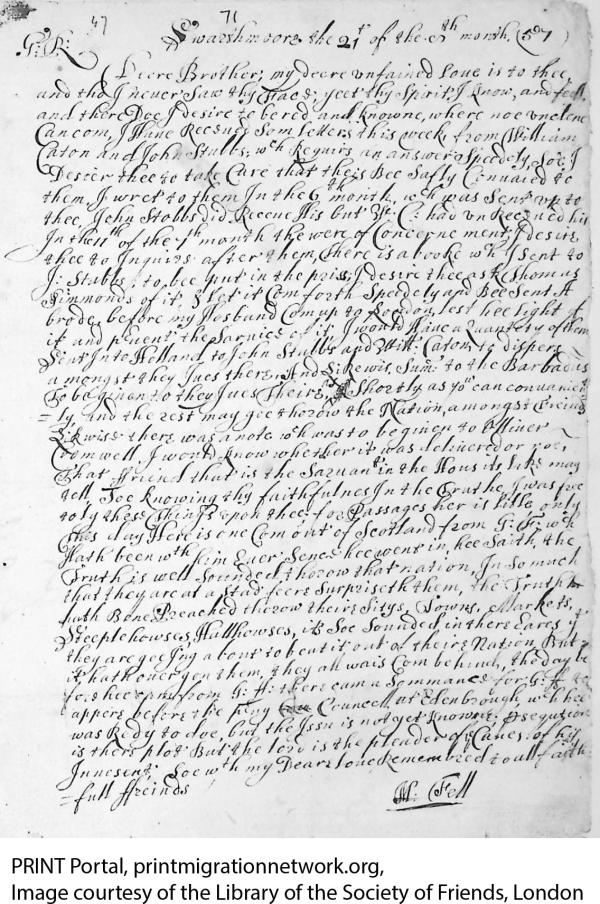 47 71
Swarthmoore the 21th of the 8th month (57)
G: R:
Deere Brother; my deere vnfained Love is to thee,
and tho I never Saw thy Faces: yeet thy Spirit, I know, and feell,
and there Doe I desire to be red and knowne, where noe vnclene
Can com, I Have Receued Som letters this weeke from William
Caton and John Stubbs; wch Requirs an answer Speedely, Soe I
Desier thee to take Care that theis Bee Safly Conuaied to
them, I wret to them In the 6th month, wch was Sent vp to
thee, John Stobbs did Receue His but W: C: had vn Receued his
In the 11th of the month the were of Concernement, I desire
thee to Inquire after them, there is a booke wch I Sent to
J: Stubbs; to bee put in the priss, I desire thee ask Thomas
Simmonds of it, & let it Com forth Speedely and Bee Sent A
brode, before my Hosband Com up to London, lest hee light of
it and preuent the Saruice of it, I would Haue a quantety of them
Sent Into Holland, to John Stubbs and Will: Caton, to dispers
amongst they Jues there, And Likewis, Sum to the Barbadus
to be giuen to they Jues Theire, Shortly as you can conuanient
=ly, and the rest may gee thorow the Nation, amongst Freinds
Likwise there was a note wch was to be giuen to Olliuer
Cromwell, I would know whether it was deliuered or noe,
That Friend that is the Saruant in the Hous its like may
tell, Soe knowing thy faithfulnes In the Truthe, I was free
to ly these things upon thee for Passages her is litle, only
thes day Here is one Com out of Scotland from G: F: wch
Hath been wth him Euer Sence hee went in, hee Saith, the
Truth is well Sounded, thorow that nation, In So much
that they are at a Stad feere Surpriseth them, the Truth
hath Bone Preached thorow theire Sitys, Towns, Markets,
Steeplehowses, Hallhowses, its Soe Sounded in there Eares yt
they are geeing about to beat it out of theire Nation, But
it hath ouergon them, they all wais Com behind, the day be
fore hee came from G: F: there cam a Sommance for G: F to
apper before the Councell at Edenbrough, wch hee
was Redy to doe, but the Issu is not yet knowne; psegution
is there plot: But the lord is the pleader of Causes of his
Innesent: Soe wth my Deare loue Remembred to all faith
=full Freinds
M: Fell
PRINT Portal, printmigrationnetwork.org,
Image courtesy of the Library of the Society of Friends, London